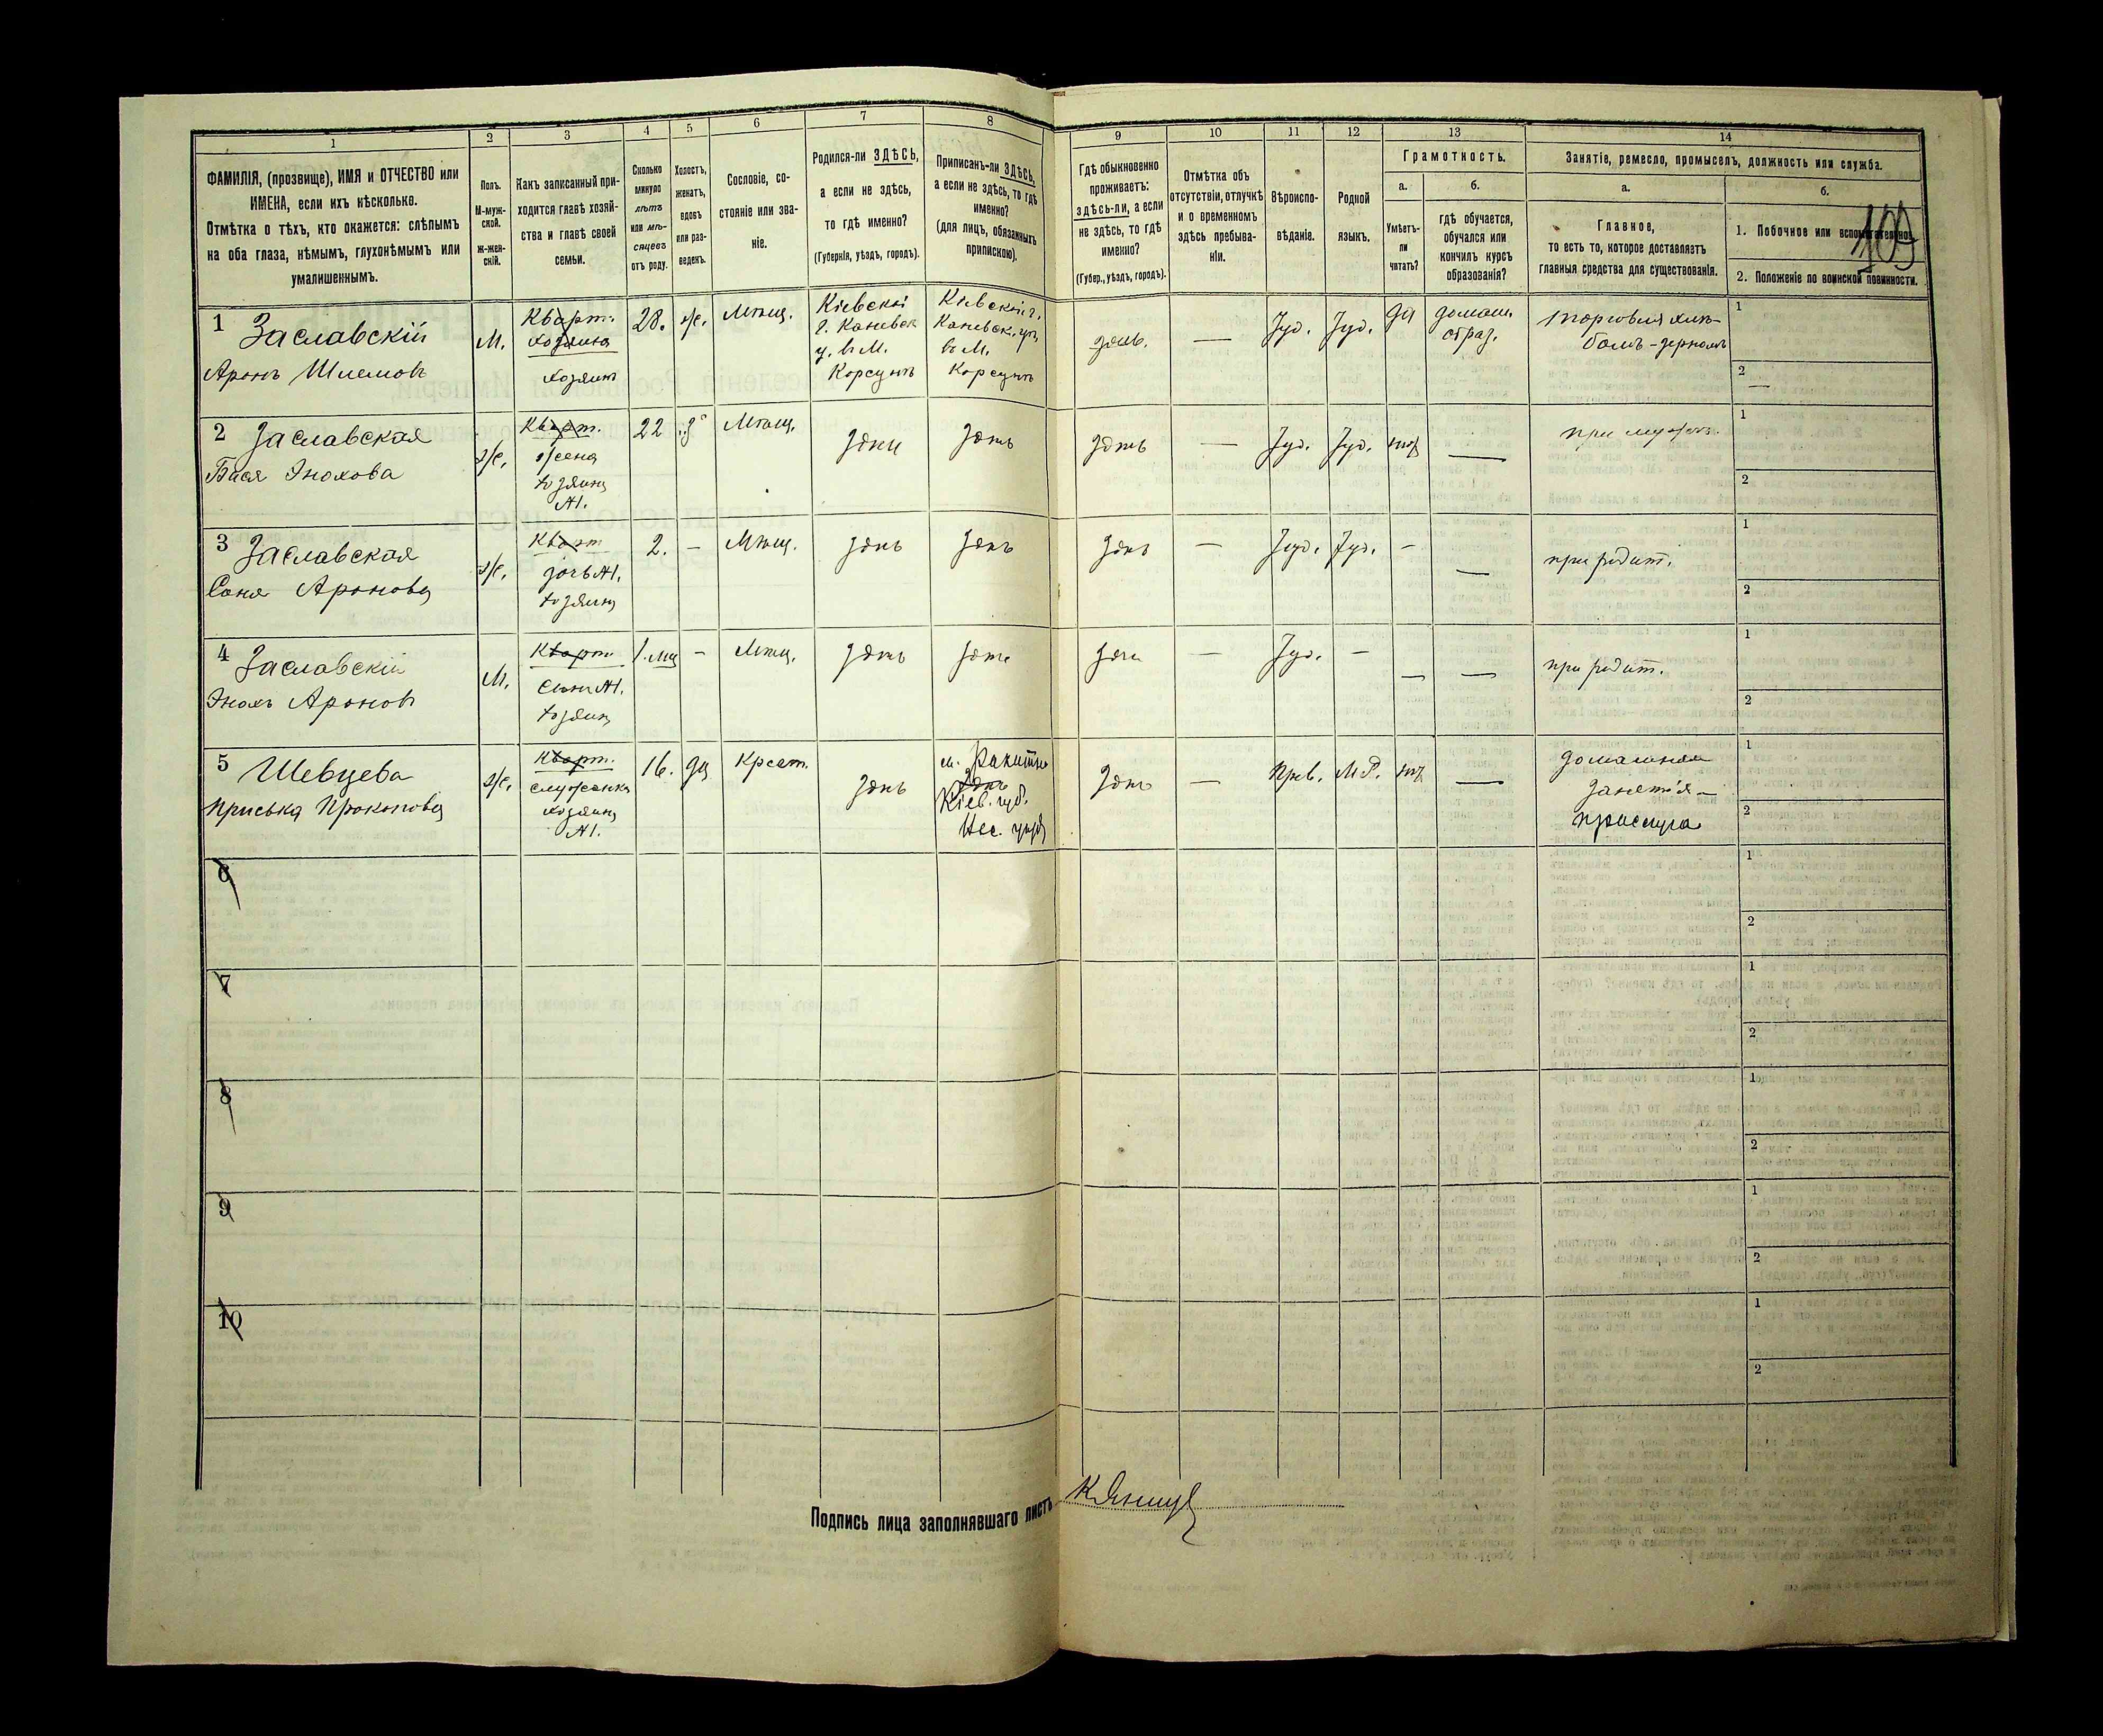 1 2 3 4 5 6 7 8 9 10 11 12 13 14
ФАМИЛІЯ, (прозвище), ИМЯ и ОТЧЕСТВО или
ИМЕНА, если ихъ нѣсколько.
Отмѣтка о тѣхъ, кто окажется: слѣпымъ
на оба глаза, нѣмымъ, глухонѣмымъ или
умалишеннымъ.
Полъ.
М-муж-
ской.
Ж-жен-
скій.
Какъ записанный при-
ходится главѣ хозяй-
ства и главѣ своей
семьи.
Сколько
минуло
лѣтъ
или мѣ-
сяцевъ
отъ роду.
Холостъ,
женатъ,
вдовъ
или раз-
веденъ.
Сословіе, со-
стояніе или зва-
ніе.
Родился-ли ЗДѢСЬ,
а если не здѣсь,
то гдѣ именно?
(Губернія, уѣздъ, городъ).
Приписанъ-ли ЗДѢСЬ,
а если не здѣсь, то гдѣ
именно?
(для лицъ, обязанныхъ
припискою).
Гдѣ обыкновенно
проживаетъ:
здѣсь-ли, а если
не здѣсь, то гдѣ
именно?
(Губер., уѣздъ, городъ).
Отмѣтка объ
отсутствіи, отлучкѣ
и о временномъ
здѣсь пребыва-
ніи.
Вѣроиспо-
вѣданіе.
Родной
языкъ.
Грамотность.
а.
Умѣетъ-
ли
читать?
б.
гдѣ обучается,
обучался или
кончилъ курсъ
образованія?
Занятіе, ремесло, промыселъ, должность или служба.
а.
Главное,
то есть то, которое доставляетъ
главныя средства для существованія.
б.
1. Побочное или вспомогательное.
2. Положеніе по воинской повинности.
109
1 Заславскій
Аронъ Шлемовъ
М.
Кварт.
хозяина
хозяинъ
28. ж. Мѣщ.
Кіевскі
г. Каневск
у. въ М.
Корсунъ
Кіевскій г.
Каневск. у.
въ М.
Корсунъ
здѣсь. — Іуд. Іуд. да
домаш.
образ.
торговля хлѣ-
бомъ - зерномъ
1
2 —
2 Заславская
Бася Энохова
ж.
Кварт.
жена
хозяина
№1.
22 з Мѣщ. здѣсь здѣсь здѣсь — Іуд. Іуд. нѣт —
при мужѣ.
1
2
3 Заславская
Соня Аронова
ж.
Кварт
дочь №1.
хозяина
2. - Мѣщ. здѣсь здѣсь здѣсь — Іуд. Іуд. - —
при родит.
1
2
4 Заславскій
Энохъ Ароновъ
М.
Кварт
Сынъ №1.
хозяина
1. мц - Мѣщ. здѣсь здѣсь здѣсь — Іуд. - — —
при родит.
1
2
5 Шевцева
Приська Прокопова
ж.
Кварт.
служанка
хозяина
№1.
16. дц Крест. здѣсь
м. Ракитно
здѣсь
Кіев. губ.
здѣсь — Прв. М.Р. нѣт —
домашняя
занятія -
прислуга
1
2
6
1
2
7
1
2
8
1
2
9
1
2
10
1
2
Подпись лица заполнявшаго листъ